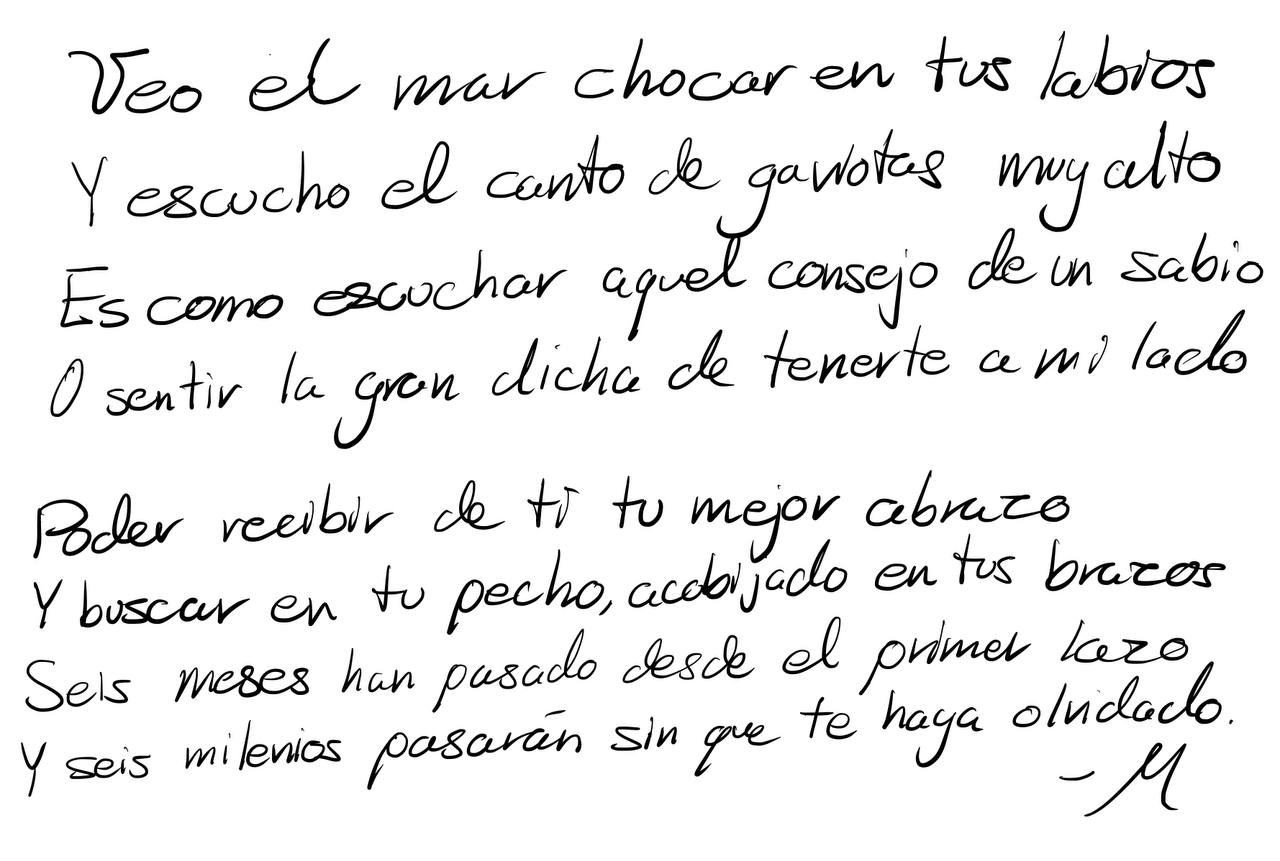 Veo el mar chocar en tus labios
Y escucho el canto de gaviotas muy alto
Es como escuchar aquel consejo de un sabio
O sentir la gran dicha de tenerte a mi lado
Poder recibir de ti tu mejor abrazo
Y buscar en tu pecho, acobijado en tus brazos
Seis meses han pasado desde el primer lazo
Y seis milenios pasarán sin que te haya olvidado.
-M